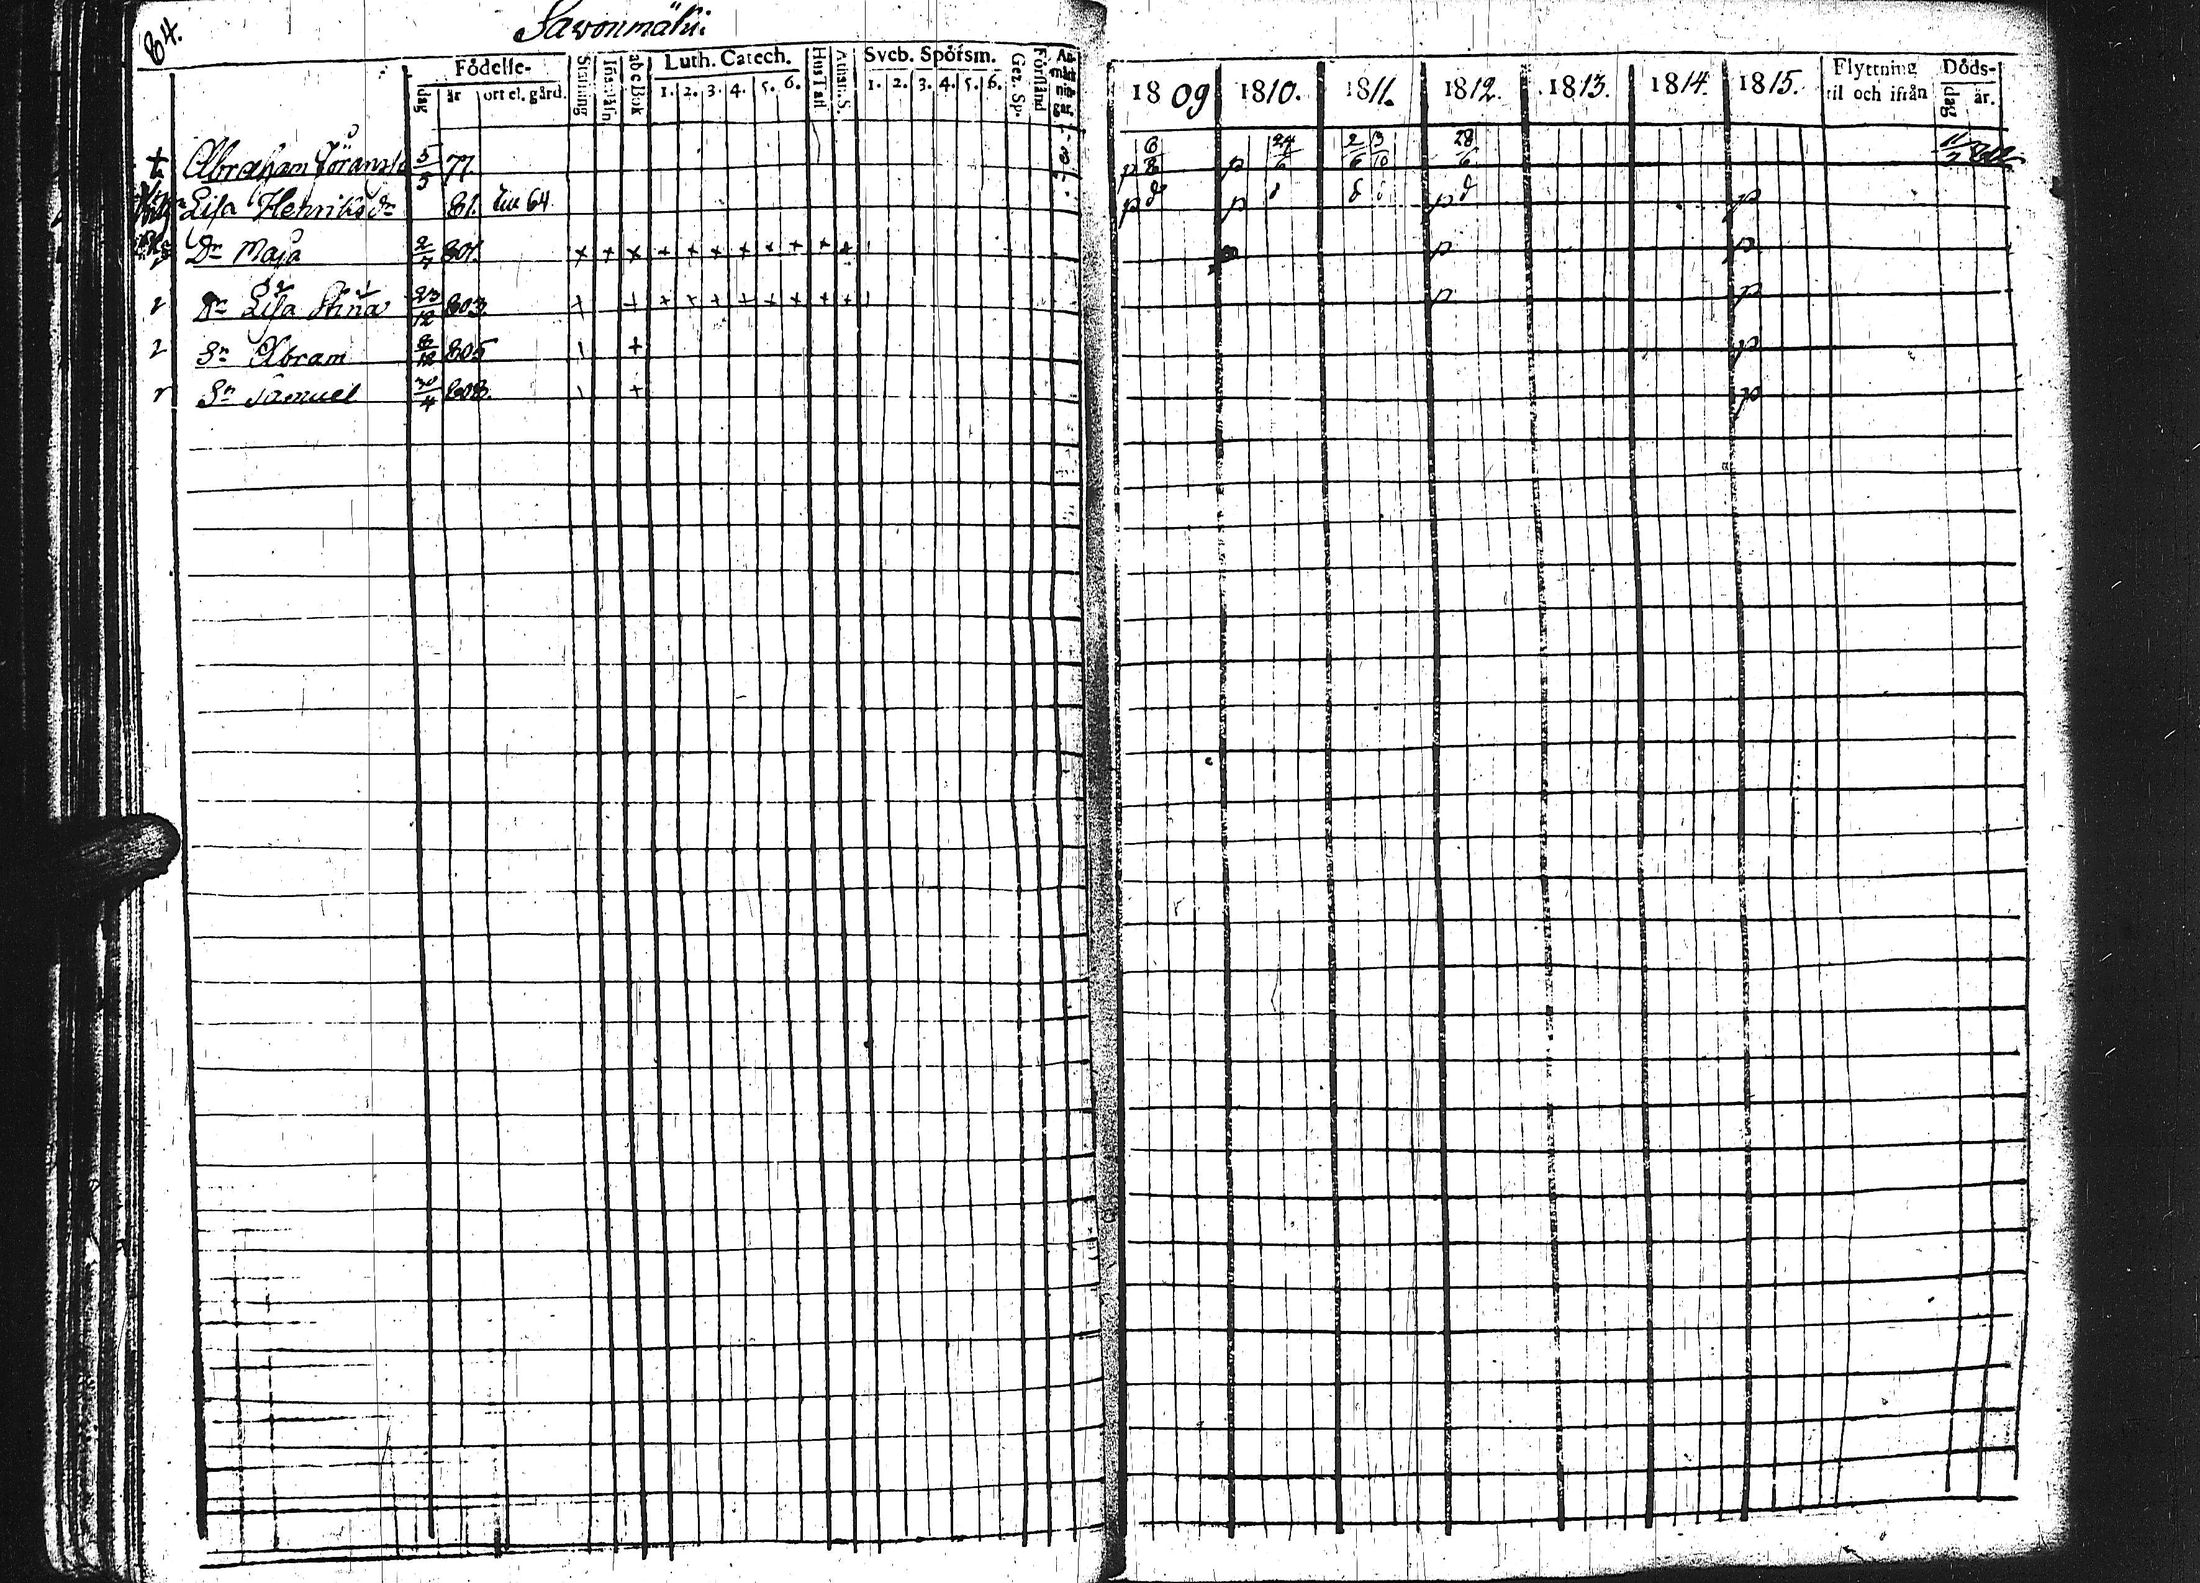 84.
Sawonmäki.
Födelse-
dag år ort el. gård.
Stafning Innanläsn. abcBok
Luth. Catech.
1. 2. 3. 4. 5. 6.
Hus Tafl. Athan. S.
Sveb. Spörsm.
1. 2. 3. 4. 5. 6.
Gez. Sp. Förstånd Anmärkningar.
1809 1810. 1811. 1812. 1813. 1814. 1815.
Flyttning til och ifrån
Döds-
dag år.
† Abraham 5/5 77. 6/8 p p 24/6 2/6 13/10 28/6
Lisa Henriksdr 81. 64. p p p p
Dr Maja 2/7 801. + + + + + + + + + + + p p
2 Dr Lisa Stina 23/12 803. + + + + + + + + + + p p
2 Sn Abram 8/12 805 + p
Sn Samuel 30/4 808. + p